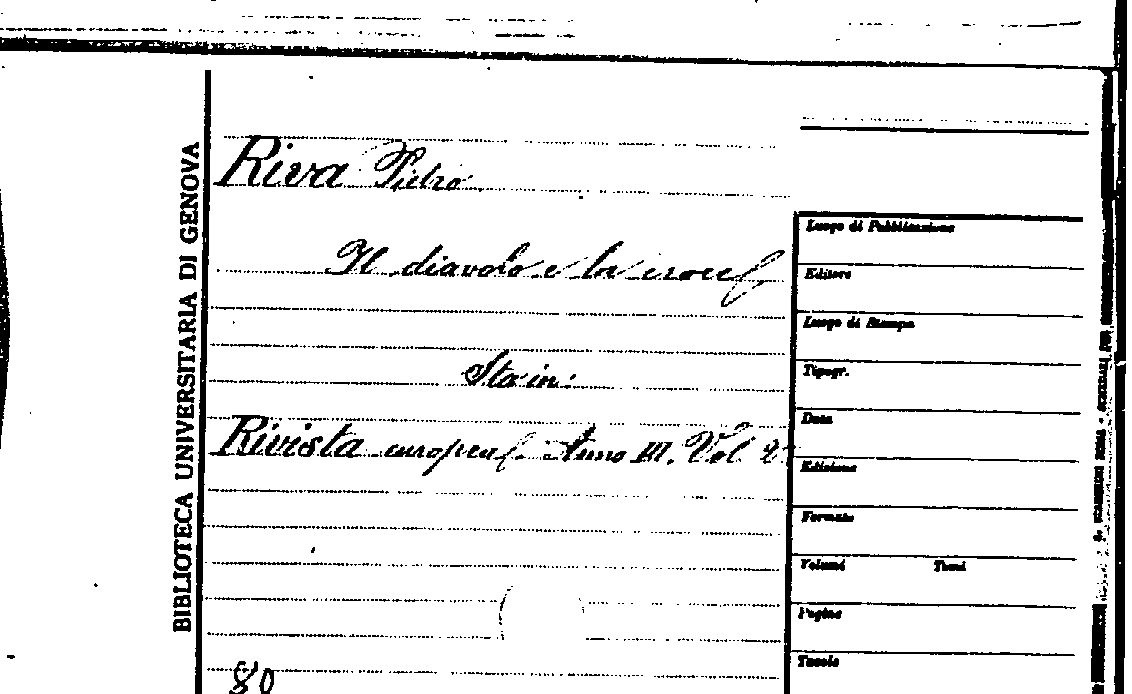 BIBLIOTECA UNIVERSITARIA DI GENOVA
Riva Pietro
Il diavolo e la croce
Sta in:
Rivista europea. Anno III. Vol 2
80
Luogo di Pubblicazione
Editore
Luogo di Stampa
Tipogr.
Data
Edizione
Formato
Volumi Tomi
Pagine
Tavole